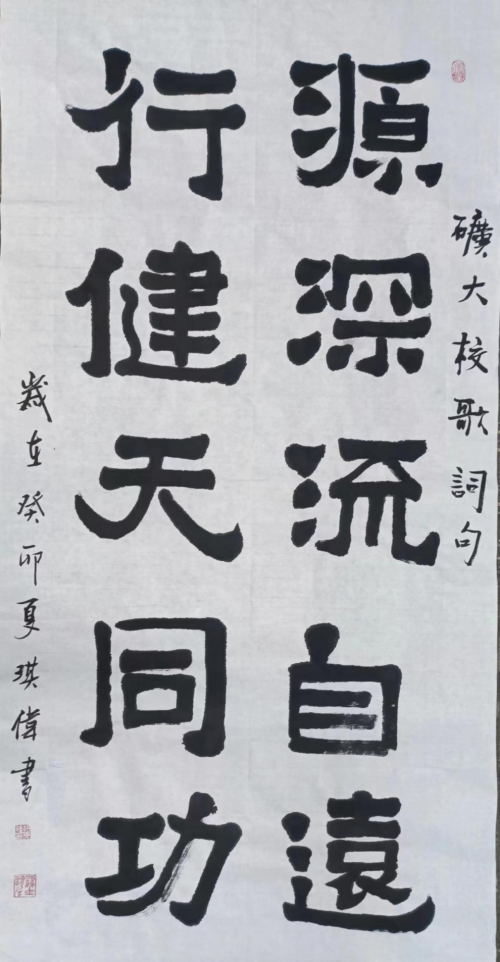 礦大校歌詞句
源深流自遠
行健天同功
歲在癸卯夏琪偉書